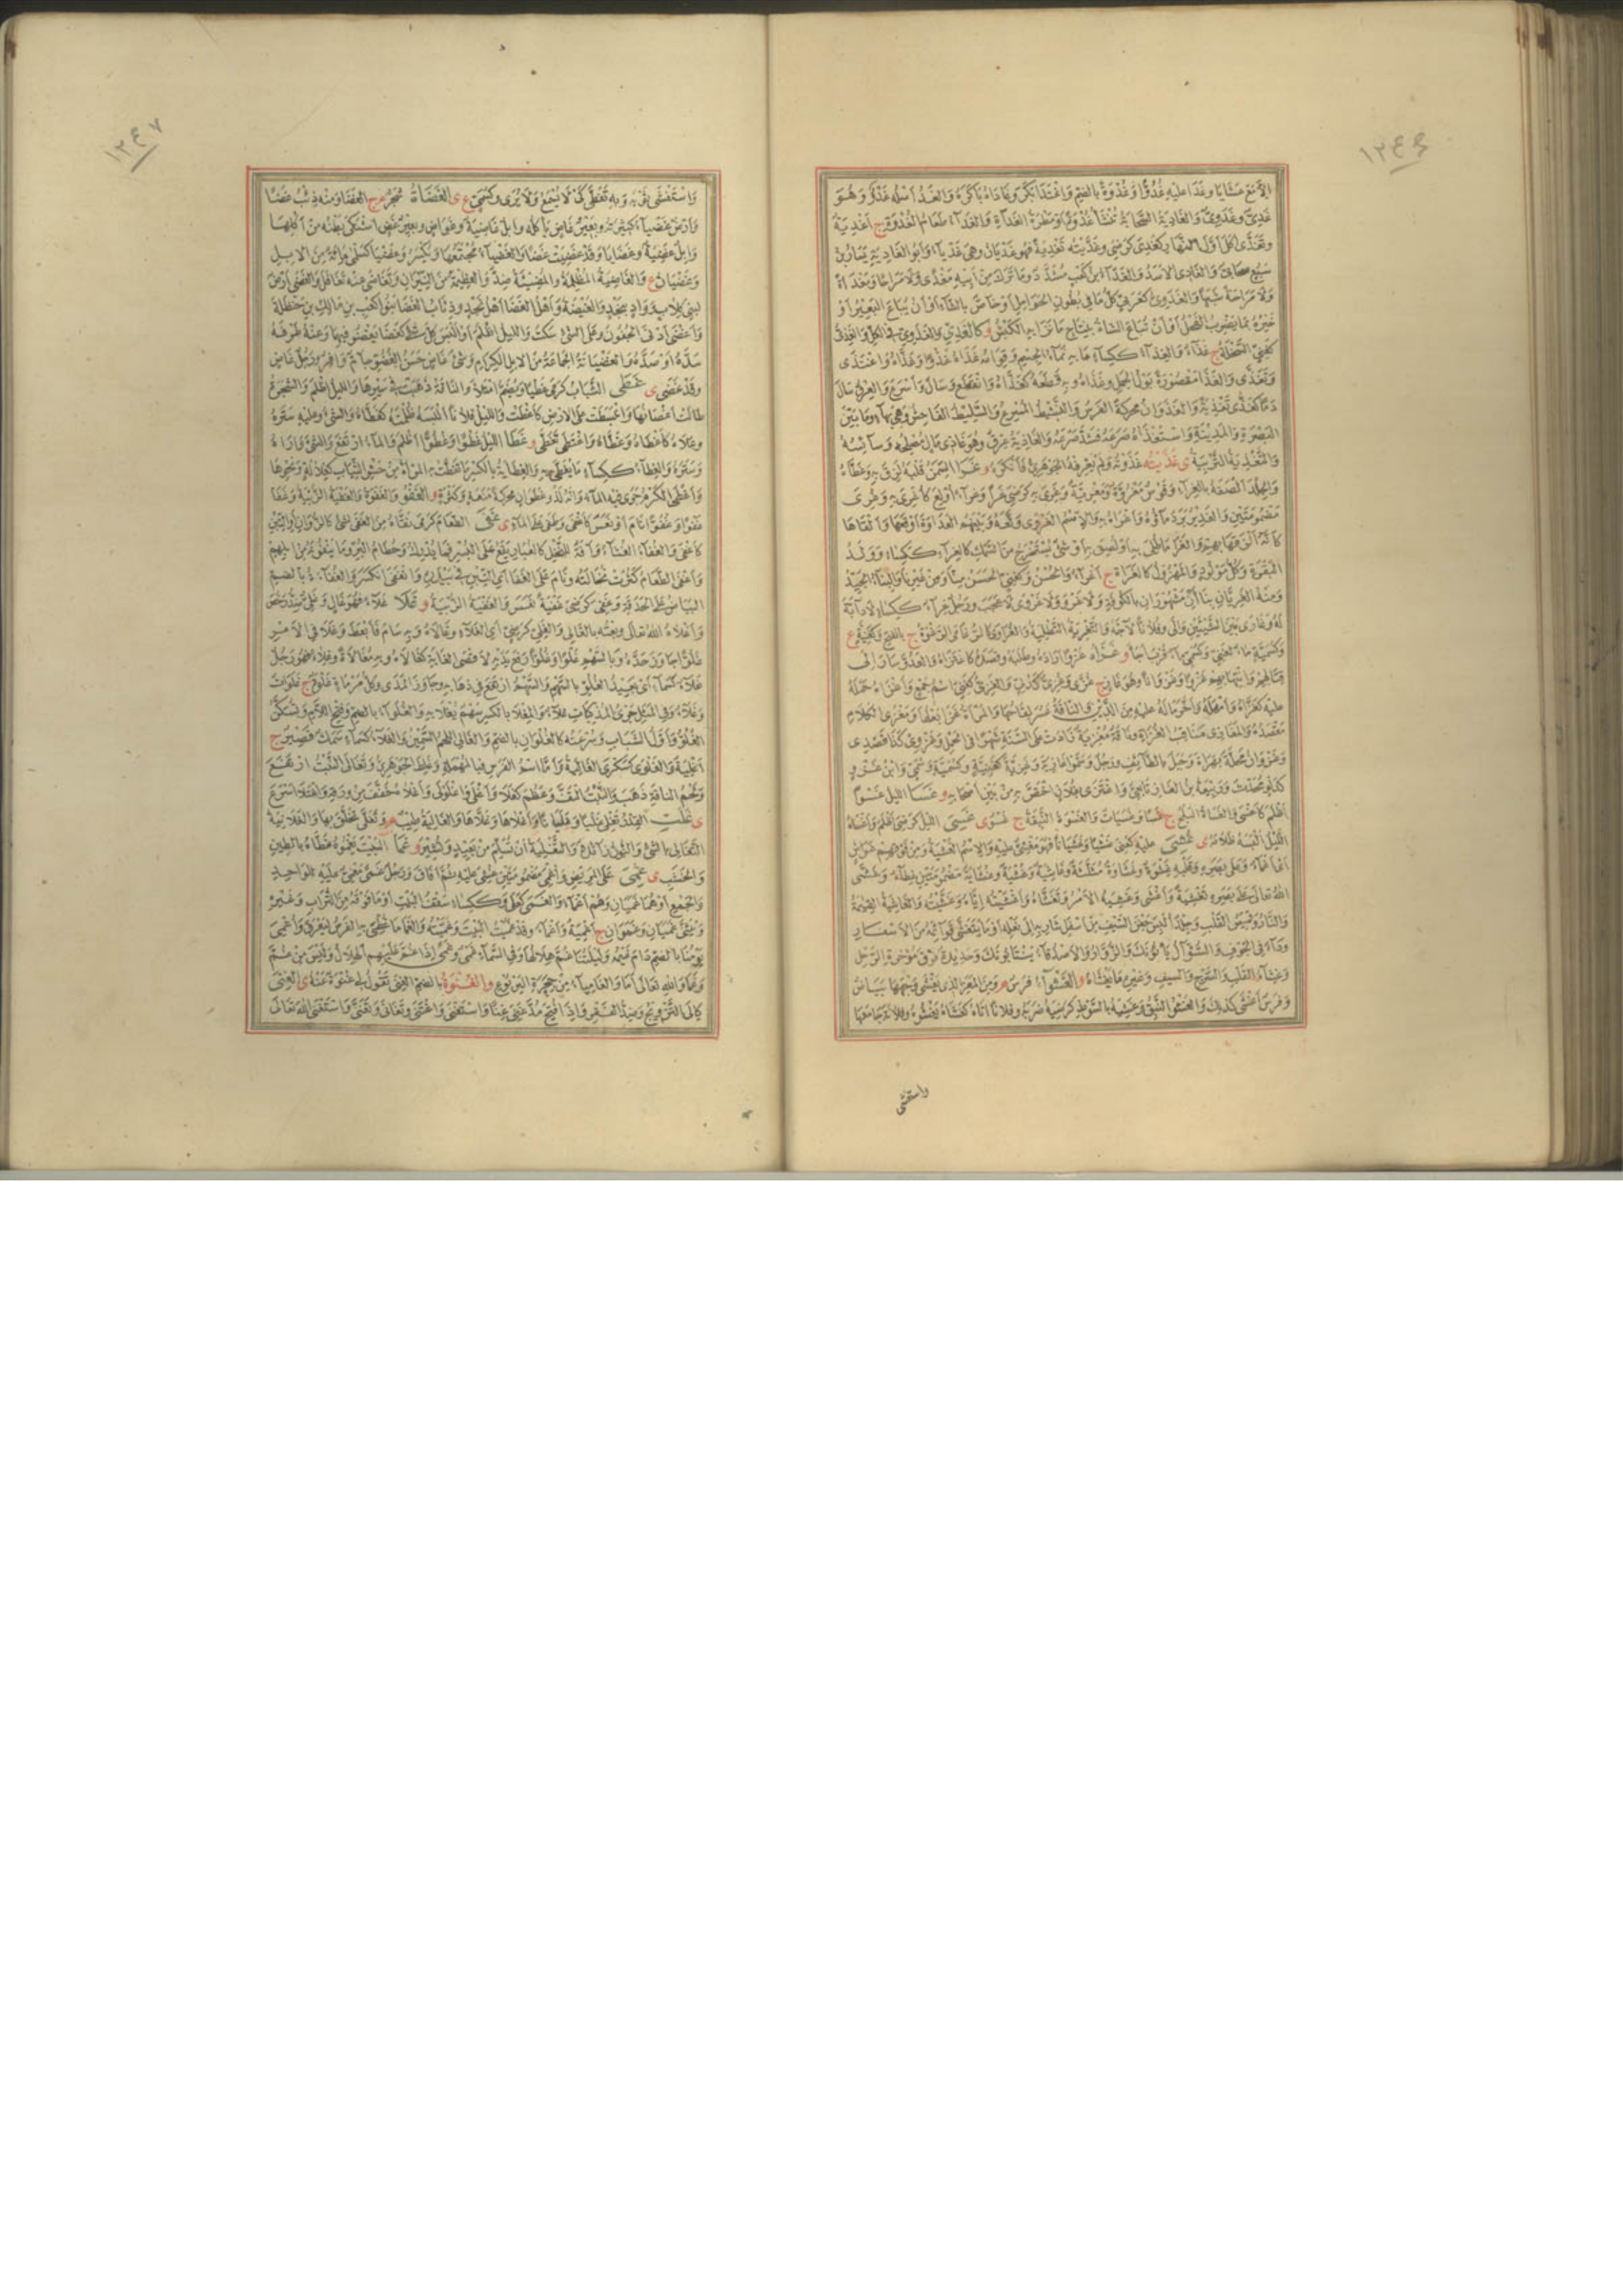 ١٢٤٦
وغدا عليه غدوا وغدوة بالضم واغتدى بكر وغاداه باكره والغد أصله غدو وهو
غدي وغدوي والغادية السحابة تنشأ غدوة أو مطرة الغداة والغداء طعام الغدوة ج أغدية
وتغدى أكل أول النهار كغدي كرضي وغديته تغدية فهو غديان وهي غدياء وأبو الغادية يسار بن
سبع صحابي والغادي الأسد
والغدوي كعربي كل ما في بطون الحوامل أو خاص بالشاء أو أن يباع البعير أو
غيره بما يضرب الفحل أو أن تباع الشاة بنتاج ما نزا به الكبش
غذاء والغذاء ككساء ما به نماء الجسم وقوامه غذاه غذوا وغذاه واغتذى
وتغذى والغذا مقصورة بول الجمل وغذاه وبه قطعه كغذاه وانقطع وسال وأسرع والعرق سال
دما كغذى تغذية والغذوان محركة الفرس النشيط المسرع والسليط الفاحش وهي بهاء وماء بين
البصرة والمدينة واستغذاه صرعه فشد صرعه والغاذية عرق وهو غاذي مال مصلحه وسائسه
والتغذية التربية ى غذيته غذوته ولم يعرفه الجوهري فأنكره و غرا السمن قلبه لزق به وغطاه
والجلد ألصقه بالغراء وقوس مغروة ومغرية وغري به كرضي غرا وغراء أولع كأغري به وغري
مضمومتين والغدير برد ماؤه وأغراه به والاسم الغروى وبينهم العداوة ألقاها
كأنه ألزقها بهم والغرا ما طلي به أو لصق به أو شيء يستخرج من السمك كالغراء ككساء وولد
البقرة وكل مولود والمهزول كالغراة ج أغراء والحسن وكغني الحسن منا ومن غيرنا والبناء الجيد
ومنه الغريان بناءان مشهوران بالكوفة ولا غرو ولا غروى لا عجب ورجل غراء ككساء لا دابة
له وغارى بين الشيئين والى وفلانا لاجه والتغرية التطلية
غزاه غزوا أراده وطلبه وقصده كاغتزاه والعدو سار إلى
قتالهم وانتهابهم غزوا وغزوانا وهو غاز ج غزى وغزي كدلي والغزي كغني اسم جمع وأغزاه حمله
عليه كغزاه وأمهله وأخر ما له عليه من الدين والناقة عسر لقاحها والمرأة غزا بعلها ومغزى الكلام
مقصده والمغازي مناقب الغزاة
وغزوان محلة بهراة وجبل بالطائف ورجل
غسا الليل غسوا
أظلم كأغسى والغساة البلحة ج غسا وغسيات والغسوة النبقة ج غسو ى غسي الليل كرضي أظلم وأغساه
الليل ألبسه ظلامه ى غشي عليه كعني غشيا وغشيانا فهو مغشي عليه والاسم الغشية ومن فوقهم غواش
أي أغماء وعلى بصره وقلبه غشوة وغشاوة مثلثة وغاشية وغشية وغشاية مضمومتين غطاء وغشى
الله تعالى على بصره تغشية وأغشى وغشيه الأمر وتغشاه وأغشيته إياه وغشيته والغاشية القيامة
والنار وقميص القلب وجلد ألبس جفن السيف من أسفل شاربه إلى نعله أو ما يتغشى قوائمه من الأسفار
وداء في الجوف والسؤال يأتونك والزوار والأصدقاء ينتابونك وحديدة فوق مؤخرة الرحل
وغشاء القلب والسرج والسيف وغيره ما يغشاه والغشواء فرس م ومن المعز التي يغشى وجهها بياض
وفرس أغشى كذلك والغشو النبق وغشيه بالسوط كرضيه ضربه وفلانا أتاه كغشاه يغشوه وفلانة جامعها
واستغشى
١٢٤٧
واستغشى ثوبه وبه تغطى كي لا يسمع ولا يرى ى الغضاة شجرة م ج الغضا ومنه ذئب غضا
وأرض غضياء كثيرته وبعير غاض يأكله وإبل غاضية وغواض وبعير غض اشتكى بطنه من أكلها
وإبل غضية وغضايا وقد غضيت غضا والغضياء مجتمعها ويكسر وغضيا كسلمى مائة من الإبل
وغضيان ع والغاضية المظلمة والمضيئة ضد والعظيمة من النيران وتغاضى عنه تغافل والغضى أرض
لبني كلاب وواد بنجد والغيضة وأهل الغضا أهل نجد وذئاب الغضا بنو كعب بن مالك بن حنظلة
وأغضى أدنى الجفون وعلى الشيء سكت والليل أظلم أو ألبس كل شيء كغضا يغضو فيهما وعنه طرفه
سده أو صده والغضيانة الجماعة من الإبل الكرام وشيء غاض حسن الغضو جام وافر ورجل غاض
وقد غضى ى غطى الشباب كرمى غطيا ويضم امتلأ والناقة ذهبت في سيرها والليل أظلم والشجرة
طالت أغصانها وانبسطت على الأرض كأغطت والليل فلانا ألبسه ظلمته كغطاه والشيء وعليه ستره
وعلاه كأغطاه وغطاه واغتطى تغطى و غطا الليل غطوا وغطوا أظلم والماء ارتفع والشيء واراه
وستره والغطاء ككساء ما يغطى به والغطاية بالكسر ما تغطت به المرأة من حشو الثياب كغلالة ونحوها
وأغطى الكرم جرى فيه الماء وإنه لذو غطوان محركة منعة وكثرة و الغفو والغفوة والغفية الزبية وغفا
غفوا وغفوا نام أو نعس كأغفى وطفا على الماء ى غفى الطعام كرمى نقاه من الغفى لشيء كالزؤان أو التبن
كأغفى والغفاء الغثاء وآفة للنخل كالغبار يقع على البسر فيمنعه الإدراك وحطام البر وما ينفونه من إبلهم
وأغفى الطعام كثرت نخالته ونام على الغفا أي التبن في بيدره وانغفى انكسر والغفاءة بالضم
البياض على الحدقة وغفي كرضي غفية نعس والغفية الزبية و غلا غلاء فهو غال وغلي ضد رخص
وأغلاه الله تعالى وبعته بالغالي والغلي كغني أي الغلاء وغالاه وبه سام فأبعط وغلا في الأمر
غلوا جاوز حده وبالسهم غلوا وغلوا رفع يديه لأقصى الغاية كغالاه وبه مغالاة وغلاء فهو رجل
غلاء كسماء أي بعيد الغلو بالسهم والسهم ارتفع في ذهابه وجاوز المدى وكل مرماة غلوة ج غلوات
وغلاء وفي المثل جري المذكيات غلاء والمغلى بالكسر سهم يغلى به والغلواء بالضم وفتح اللام ويسكن
الغلو وأول الشباب وسرعته كالغلوان بالضم والغالي اللحم السمين والغلاء كسماء سمك قصير ج
أغلية والغلوى كسكرى الغالية وأما اسم الفرس فبالمهملة وغلط الجوهري وتغالى النبت ارتفع
ولحم الناقة ذهب والنبت التف وعظم كغلا وأغلى واغلولى وأغلاه خفف من ورقه واغتلى أسرع
ى غلت القدر تغلي غليا وغليانا وأغلاها وغلاها والغالية طيب م وتغلى تخلق بها والغلانية
التغالي بالشيء والنون زائدة والتغلية أن تسلم من بعيد وتشير و غما البيت يغموه غطاه بالطين
والخشب ى غمي على المريض وأغمي مضمومتين غشي عليه ثم أفاق ورجل غمى مغمى عليه للواحد
والجمع أو هما غميان وهم أغماء والغمى كعلى وككساء سقف البيت أو ما فوقه من التراب وغيره
ويثنى غميان وغموان ج أغمية وأغماء وقد غميت البيت وغميته والغما ما غطي به الفرس ليعرق وأغمي
يومنا بالضم دام غيمه وليلتنا غم هلالها وفي السماء غمى وغمي إذا غم عليهم الهلال وليس من غم
وغما والله تعالى أما والغامياء من جحرة اليربوع و الغنوة بالضم الغنى تقول لي عنه غنوة ى الغنى
كإلى التزويج وضد الفقر وإذا فتح مد غني غنى واستغنى واغتنى وتغانى وتغنى واستغنى الله تعالى